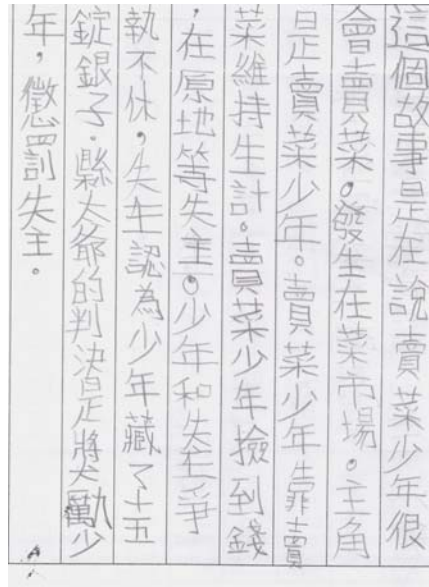 這個故事是在說賣菜少年很
會賣菜。發生在菜市場。主角
是賣菜少年。賣菜少年靠賣
菜維持生計。賣菜少年撿到錢
，在原地等失主。少年和失主爭
執不休，失主認為少年藏了十五
錠銀子。縣太爺的判決是獎勵少
年，懲罰失主。